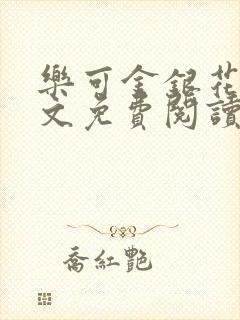 樂可金銀花
文免費閱讀
喬紅艷